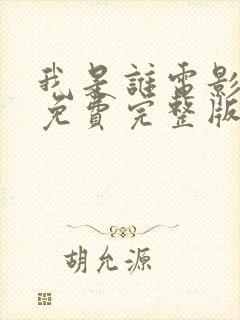 我是誰電影
免費完整版
胡允源